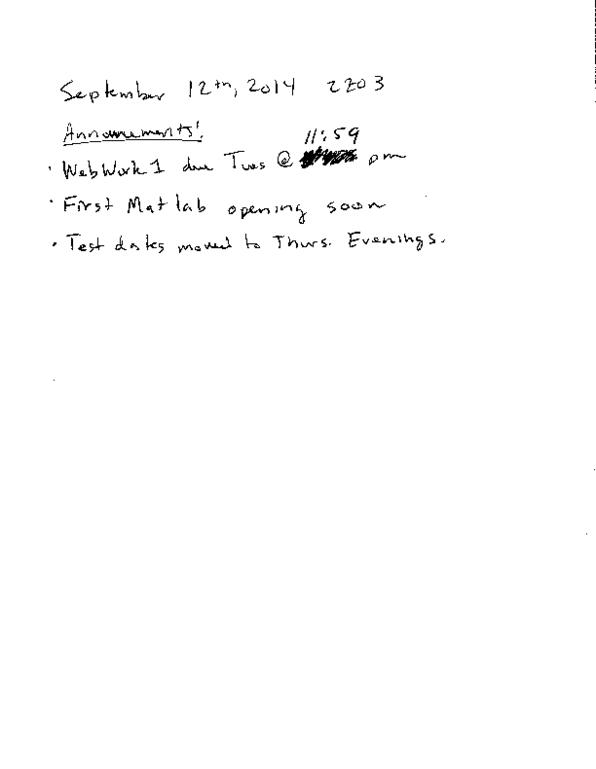 September 12th, 2014 2Z03
Announcements:
11:59
· WebWork 1 due Tues @ pm
· First Matlab opening soon
· Test dates moved to Thurs. Evenings.